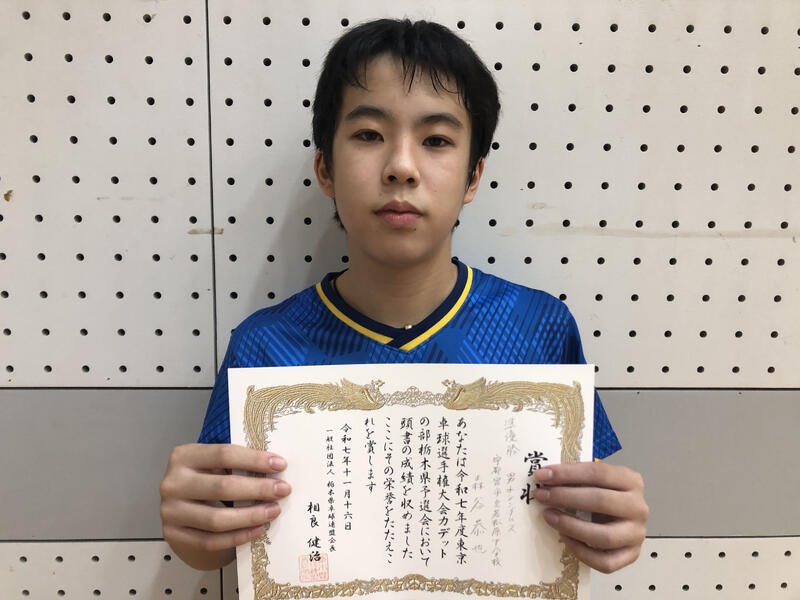 賞状
準優勝 男子シングルス
宇都宮市立若松原中学校
谷 恭也
あなたは令和七年度東京
卓球選手権大会カデット
の部栃木県予選会において
頭書の成績を収めました
ここにその栄誉をたたえこ
れを賞します
令和七年十一月十六日
一般社団法人 栃木県卓球連盟会長
相良 健治